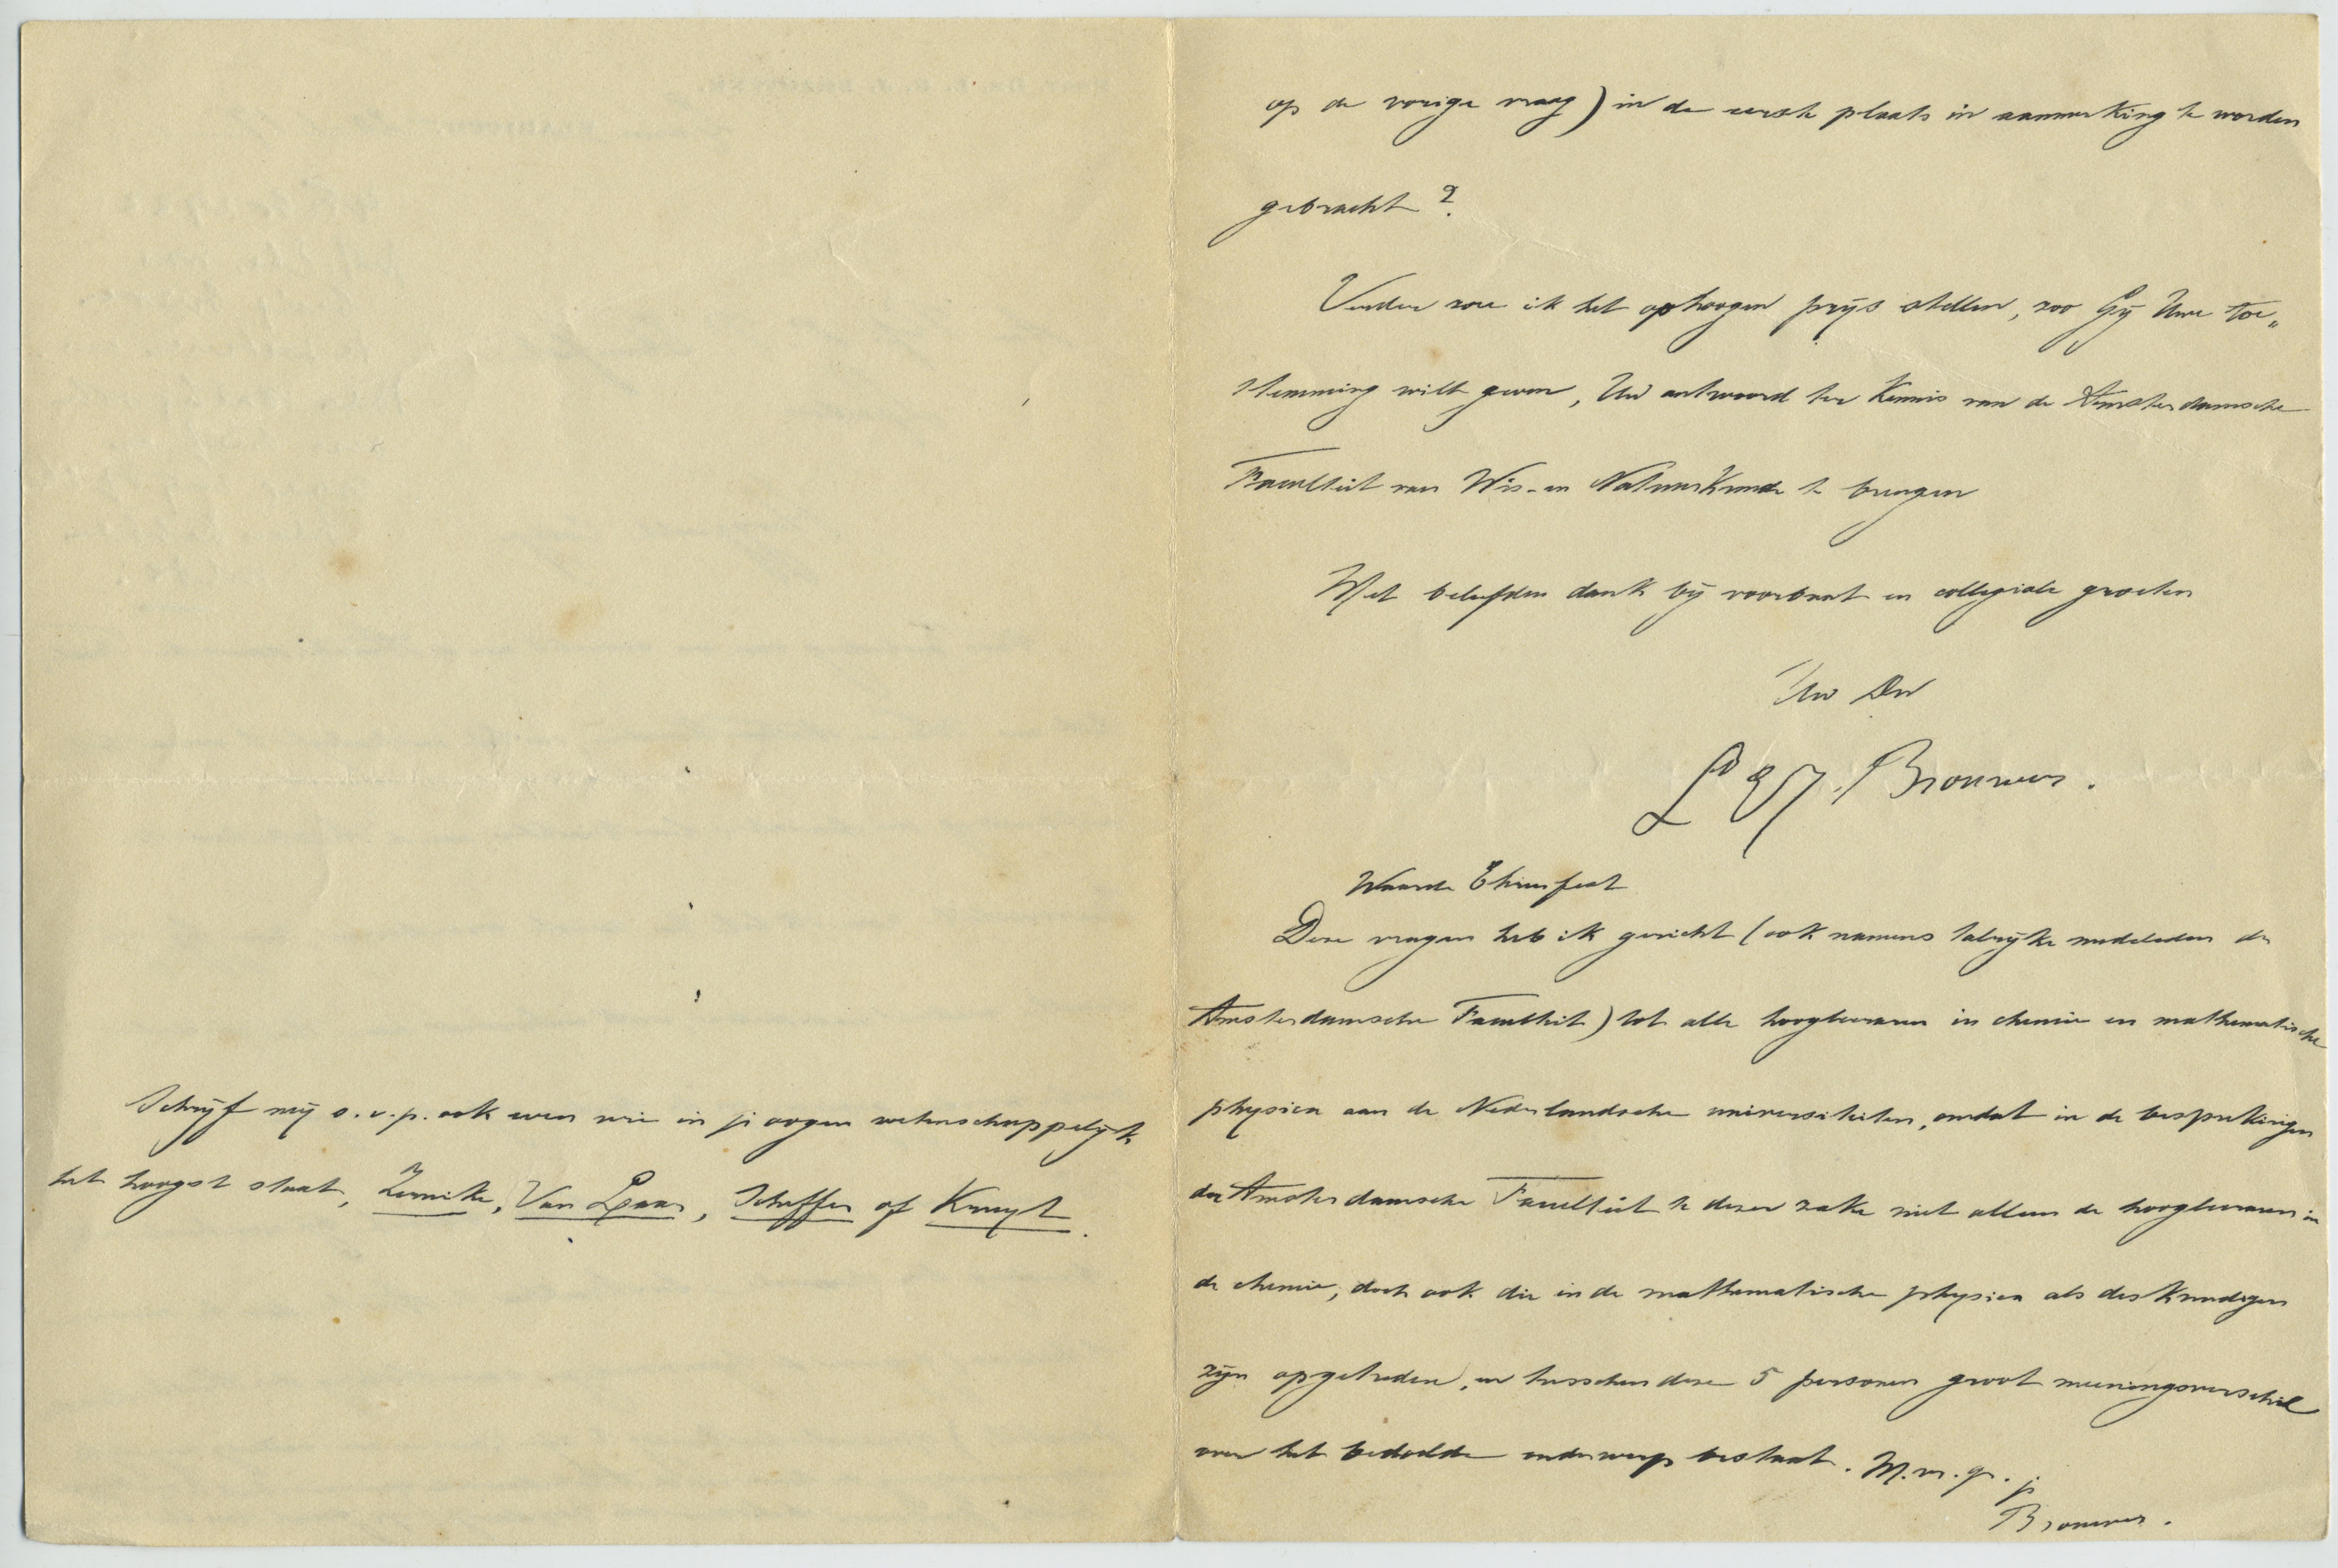 op de vorige vraag) in de eerste plaats in aanmerking te worden
gebracht?
Verder zou ik het op hoogen prijs stellen, zoo Gij Uwe toe„
stemming wilt geven, Uw antwoord ter kennis van de Amsterdamsche
Faculteit van Wis- en Natuurkunde te brengen
Met beleefden dank bij voorbaat en collegiale groeten
Uw Dw
L E J Brouwer.
Waarde Ehrenfest
Deze vragen heb ik gericht (ook namens talrijke medeleden der
Amsterdamsche Faculteit) tot alle hoogleeraren in chemie en mathematische
physica aan de Nederlandsche universiteiten, omdat in de besprekingen
der Amsterdamsche Faculteit te dezer zake niet alleen de hoogleeraren in
de chemie, doch ook die in de mathematische physica als deskundigen
zijn opgetreden, en tusschen deze 5 personen groot meeningsverschil
over het bedoelde onderwerp bestaat. M. v. gr. je
Brouwer.
Schrijf mij s.v.p. ook even wie in je oogen wetenschappelijk
het hoogst staat, Zernike, Van Laar, Scheffer of Kruyt.